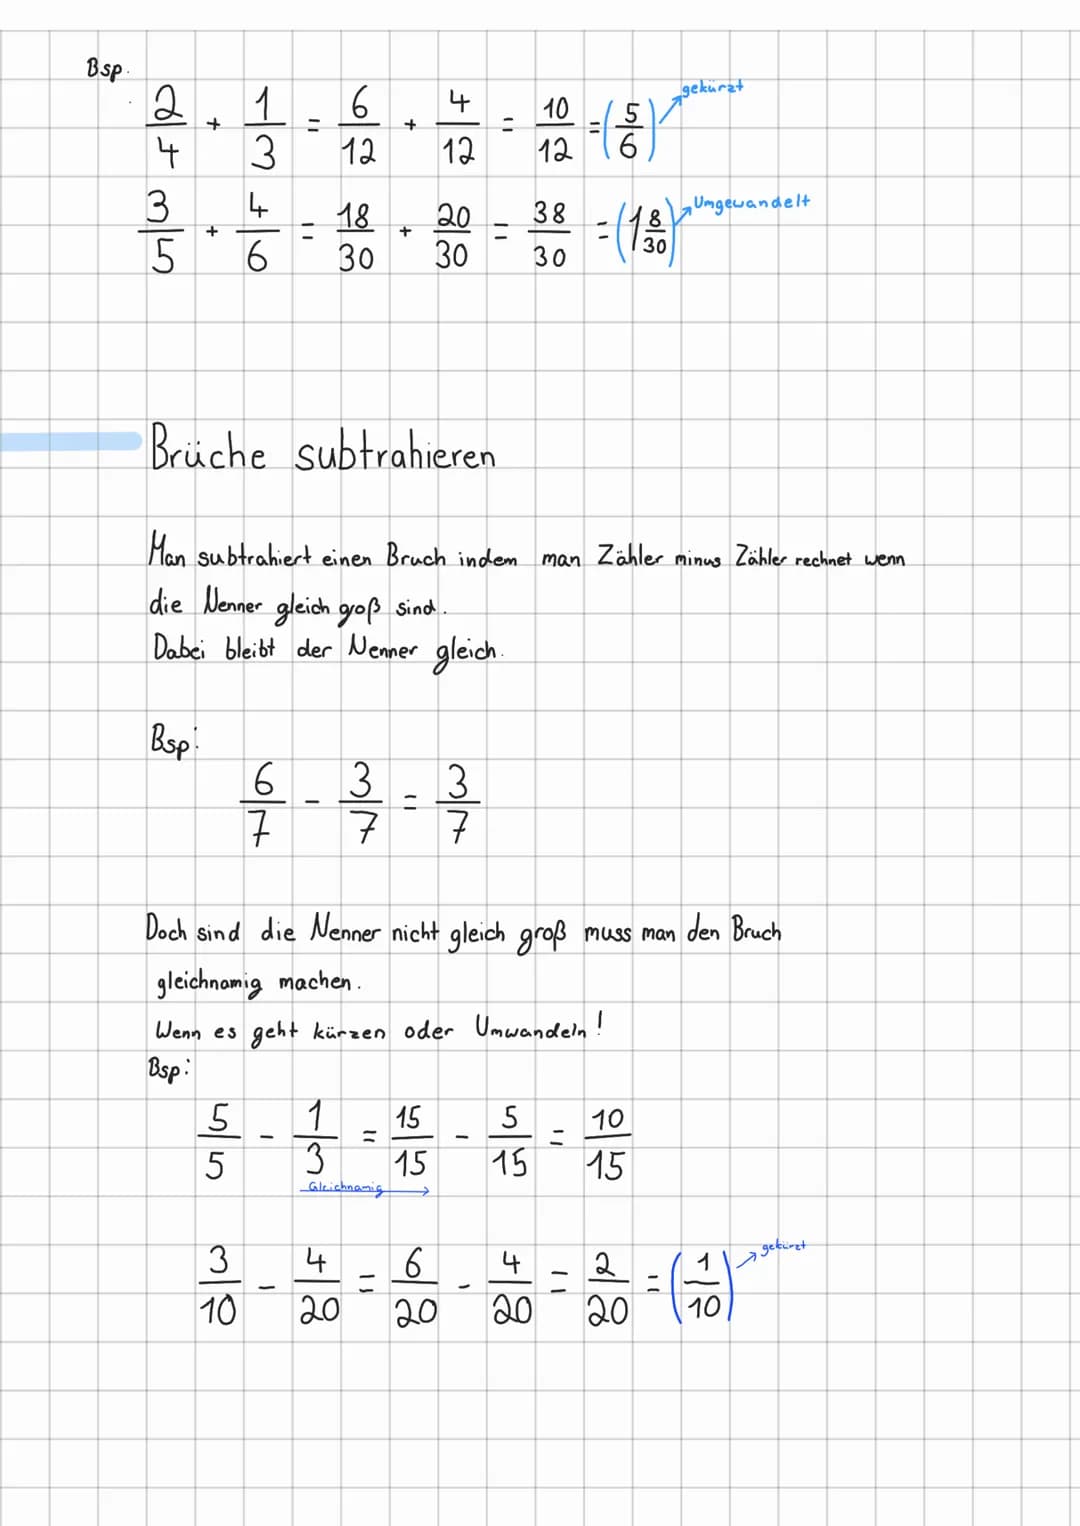 Bsp.
2/4 + 1/3 = 6/12 + 4/12 = 10/12 = (5/6) gekürzt
3/5 + 4/6 = 18/30 + 20/30 = 38/30 = (1 8/30) Umgewandelt
Brüche subtrahieren
Man subtrahiert einen Bruch indem man Zähler minus Zähler rechnet wenn
die Nenner gleich goß sind.
Dabei bleibt der Nenner gleich.
Bsp:
6/7 - 3/7 = 3/7
Doch sind die Nenner nicht gleich groß muss man den Bruch
gleichnamig machen.
Wenn es geht kürzen oder Umwandeln!
Bsp:
5/5 - 1/3 = 15/15 - 5/15 = 10/15
Gleichnamig
3/10 - 4/20 = 6/20 - 4/20 = 2/20 = (1/10) gekürzt